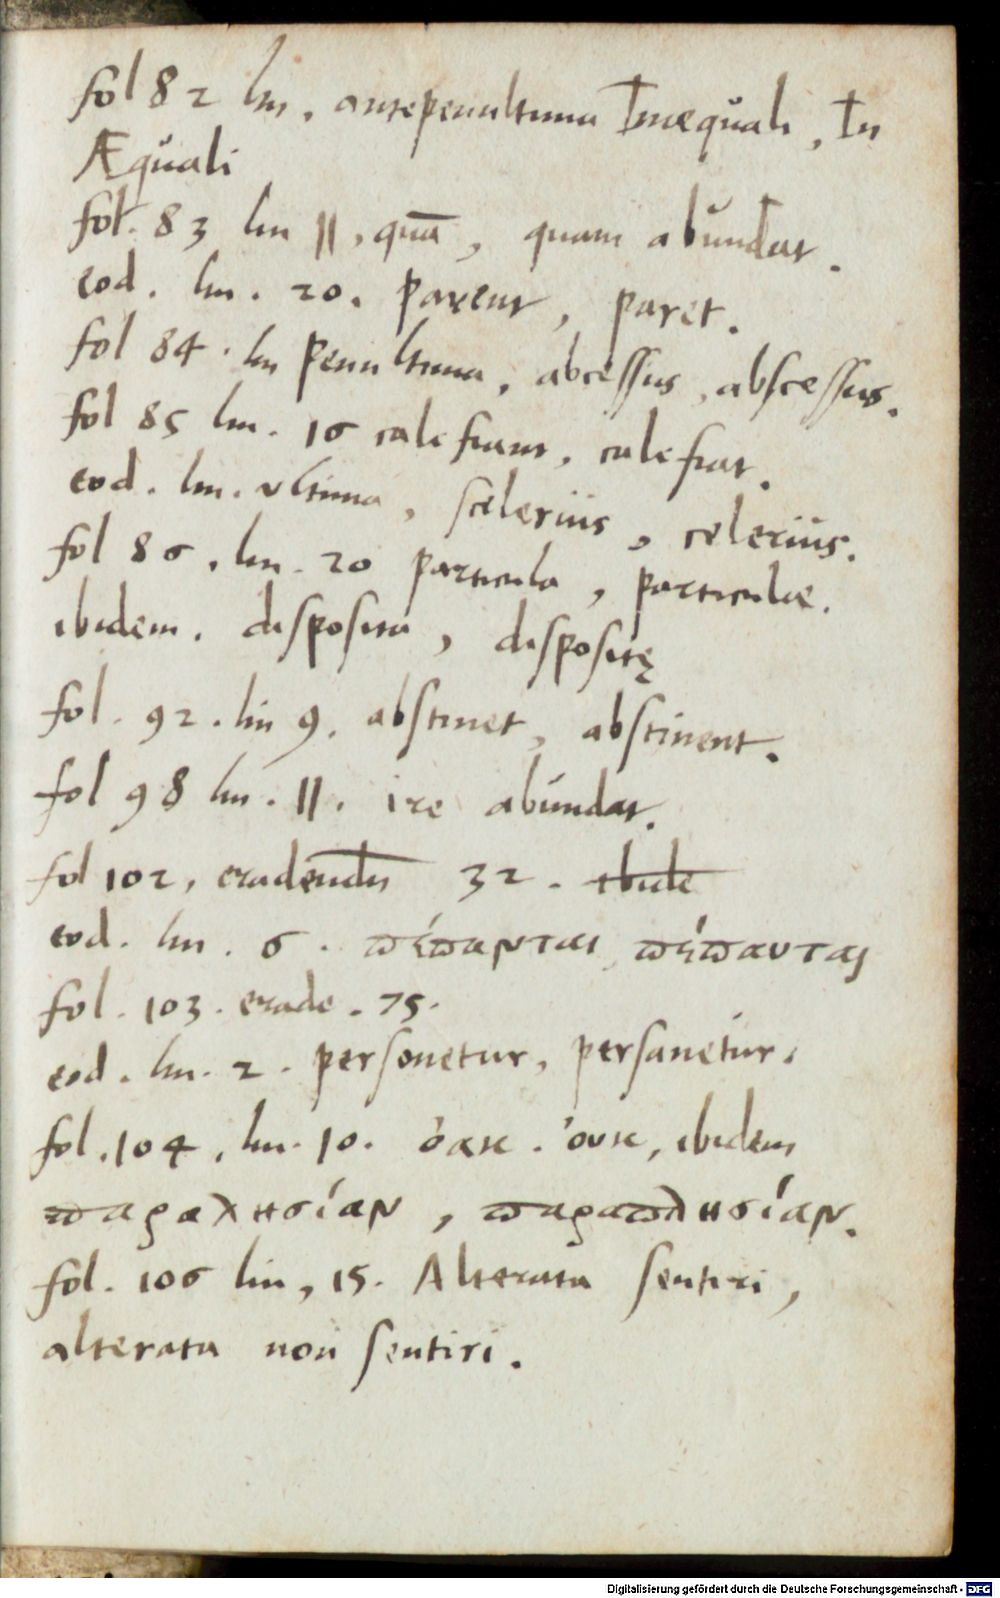 fol 82 lin. antepenultima Inæquali, In
Æquali
fol. 83 lin 11, quā, quam abundat.
eod. lin. 20. parent, paret.
fol 84. lin penultima, abcessus, abscessus.
fol 85 lin. 16 calefiant, calefiat.
eod. lin. ultima, sceleriùs, celeriùs.
fol 86, lin. 20 particula, particulæ.
ibidem. disposita, dispositę
fol. 92. lin 9. abstinet, abstinent.
fol 98 lin. 11. ire abúndat.
fol 102, eradendū 32. ibidē
eod. lin. 6. ϖέϖανται ϖέϖαυται
fol. 103. erade. 75.
eod. lin. 2. personetur, persanetur.
fol. 104, lin. 10. ὀακ. ὀυκ, ibidem
ϖαραλησίαν, ϖαραϖλησίαν.
fol. 106 lin, 15. Alterata sentiri,
alterata non sentiri.
Digitalisierung gefördert durch die Deutsche Forschungsgemeinschaft - DFG